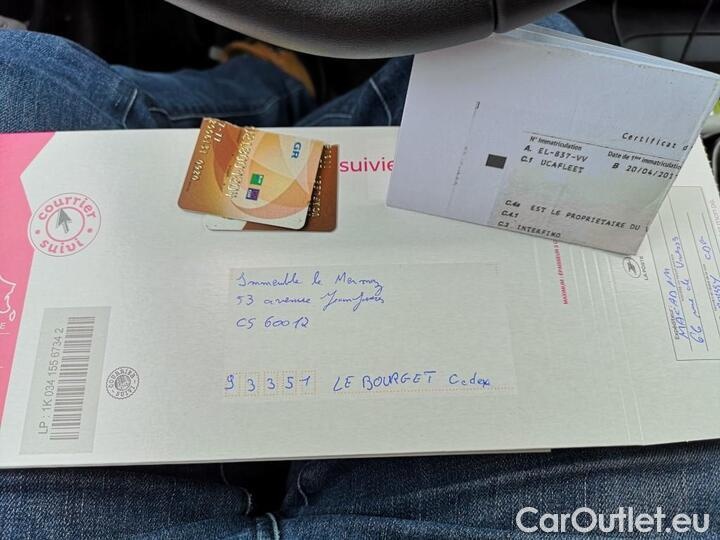 Certificat d
N° Immatriculation
A. EL-837-VV
Date de 1ère immatriculation
B 20/04/201
C.1 UCAFLEET
C.4a EST LE PROPRIETAIRE DU
C.4.1
C.3 INTERFIMO
suivie
courrier
suivi
GR
MAXIMUM : ÉPAISSEUR 3
LA POSTE
MACADAM
66 rue de
Immeuble le Mermoz
53 avenue
CS 60012
93351 LE BOURGET Cedex
LP : 1K 034 155 6734 2
COURRIER
SUIVI
CarOutlet.eu